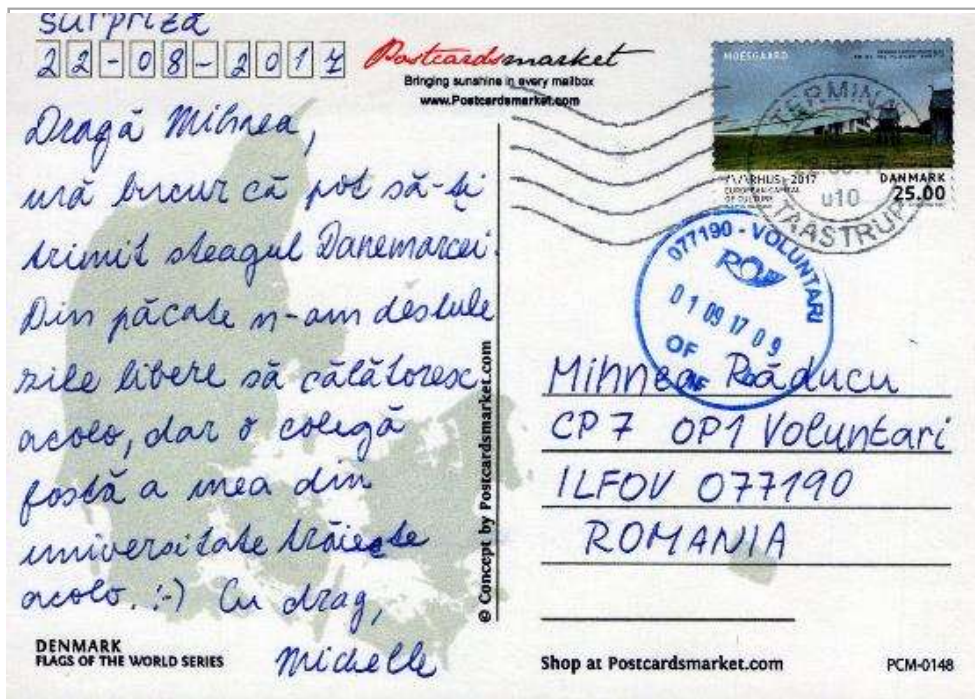 surpriză
22-08-2017
Postcardsmarket
Bringing sunshine in every mailbox
www.Postcardsmarket.com
Dragă Mihnea,
mă bucur că pot să-ți
trimit steagul Danemarcei.
Din păcate n-am destule
zile libere să călătoresc
acolo, dar o colegă
fostă a mea din
universitate trăiește
acolo. :-) Cu drag,
Michelle
DENMARK
FLAGS OF THE WORLD SERIES
© Concept by Postcardsmarket.com
MOESGAARD
AARHUS 2017
EUROPEAN CAPITAL
OF CULTURE
DANMARK
25.00
TERMINAL
u10
TAASTRUP
077190 - VOLUNTARI
01 09 17 09
OF
Mihnea Răducu
CP7 OP1 Voluntari
ILFOV 077190
ROMANIA
Shop at Postcardsmarket.com
PCM-0148